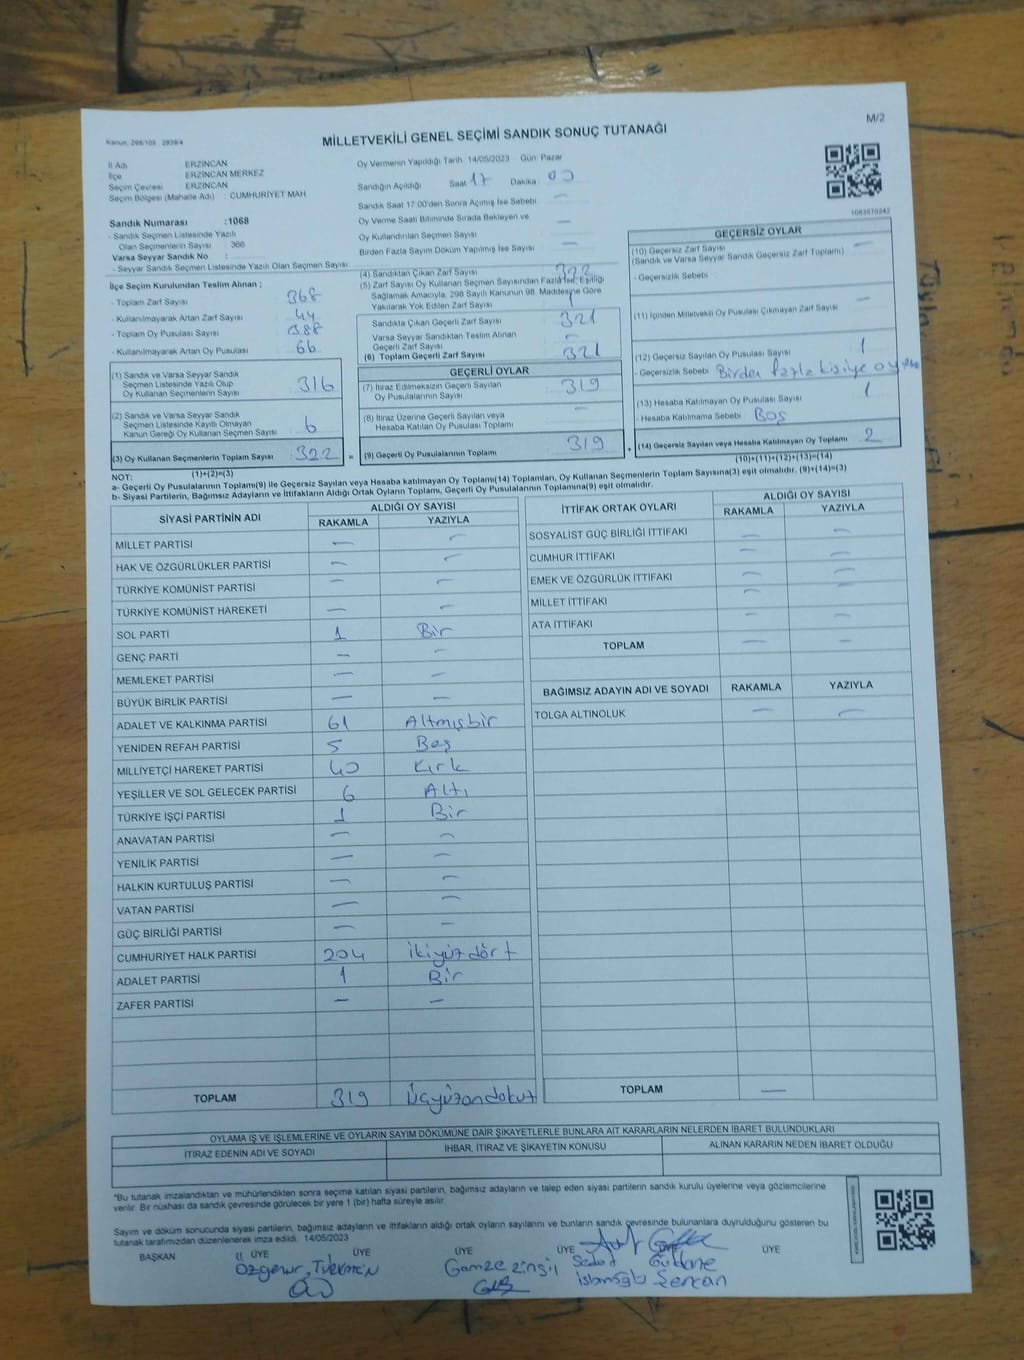 M/2
Kanun: 298/105 2839/4
MİLLETVEKİLİ GENEL SEÇİMİ SANDIK SONUÇ TUTANAĞI
İl Adı ERZİNCAN
İlçe ERZİNCAN MERKEZ
Seçim Çevresi ERZİNCAN
Seçim Bölgesi (Mahalle Adı) : CUMHURİYET MAH.
Sandık Numarası :1068
- Sandık Seçmen Listesinde Yazılı
Olan Seçmenlerin Sayısı : 366
Varsa Seyyar Sandık No :
- Seyyar Sandık Seçmen Listesinde Yazılı Olan Seçmen Sayısı:
İlçe Seçim Kurulundan Teslim Alınan ;
- Toplam Zarf Sayısı 368
- Kullanılmayarak Artan Zarf Sayısı 44
- Toplam Oy Pusulası Sayısı 388
- Kullanılmayarak Artan Oy Pusulası 66
(1) Sandık ve Varsa Seyyar Sandık
Seçmen Listesinde Yazılı Olup
Oy Kullanan Seçmenlerin Sayısı 316
(2) Sandık ve Varsa Seyyar Sandık
Seçmen Listesinde Kayıtlı Olmayan
Kanun Gereği Oy Kullanan Seçmen Sayısı 6
(3) Oy Kullanan Seçmenlerin Toplam Sayısı 322 =
(1)+(2)=(3)
Oy Vermenin Yapıldığı Tarih 14/05/2023 Gün: Pazar
Sandığın Açıldığı Saat 17 Dakika 00
Sandık Saat 17.00'den Sonra Açılmış İse Sebebi —
Oy Verme Saati Bitiminde Sırada Bekleyen ve
Oy Kullandırılan Seçmen Sayısı —
Birden Fazla Sayım Döküm Yapılmış İse Sayısı —
(4) Sandıktan Çıkan Zarf Sayısı 322
(5) Zarf Sayısı Oy Kullanan Seçmen Sayısından Fazla İse, Eşitliği
Sağlamak Amacıyla, 298 Sayılı Kanunun 98. Maddesine Göre
Yakılarak Yok Edilen Zarf Sayısı
Sandıkta Çıkan Geçerli Zarf Sayısı 321
Varsa Seyyar Sandıktan Teslim Alınan
Geçerli Zarf Sayısı —
(6) Toplam Geçerli Zarf Sayısı 321
GEÇERLİ OYLAR
(7) İtiraz Edilmeksizin Geçerli Sayılan
Oy Pusulalarının Sayısı 319
(8) İtiraz Üzerine Geçerli Sayılan veya
Hesaba Katılan Oy Pusulası Toplamı —
(9) Geçerli Oy Pusulalarının Toplamı 319 +
1083570242
GEÇERSİZ OYLAR
(10) Geçersiz Zarf Sayısı —
(Sandık ve Varsa Seyyar Sandık Geçersiz Zarf Toplamı)
- Geçersizlik Sebebi :
(11) İçinden Milletvekili Oy Pusulası Çıkmayan Zarf Sayısı —
(12) Geçersiz Sayılan Oy Pusulası Sayısı 1
- Geçersizlik Sebebi Birden fazla kişiye oy
(13) Hesaba Katılmayan Oy Pusulası Sayısı 1
- Hesaba Katılmama Sebebi Boş
(14) Geçersiz Sayılan veya Hesaba Katılmayan Oy Toplamı 2
(10)+(11)+(12)+(13)=(14)
NOT:
a- Geçerli Oy Pusulalarının Toplamı(9) ile Geçersiz Sayılan veya Hesaba katılmayan Oy Toplamı(14) Toplamları, Oy Kullanan Seçmenlerin Toplam Sayısına(3) eşit olmalıdır. (9)+(14)=(3)
b- Siyasi Partilerin, Bağımsız Adayların ve İttifakların Aldığı Ortak Oyların Toplamı, Geçerli Oy Pusulalarının Toplamına(9) eşit olmalıdır.
SİYASİ PARTİNİN ADI ALDIĞI OY SAYISI
RAKAMLA YAZIYLA
MİLLET PARTİSİ — —
HAK VE ÖZGÜRLÜKLER PARTİSİ — —
TÜRKİYE KOMÜNİST PARTİSİ — —
TÜRKİYE KOMÜNİST HAREKETİ — —
SOL PARTİ 1 Bir
GENÇ PARTİ — —
MEMLEKET PARTİSİ — —
BÜYÜK BİRLİK PARTİSİ — —
ADALET VE KALKINMA PARTİSİ 61 Altmışbir
YENİDEN REFAH PARTİSİ 5 Beş
MİLLİYETÇİ HAREKET PARTİSİ 40 Kırk
YEŞİLLER VE SOL GELECEK PARTİSİ 6 Altı
TÜRKİYE İŞÇİ PARTİSİ 1 Bir
ANAVATAN PARTİSİ — —
YENİLİK PARTİSİ — —
HALKIN KURTULUŞ PARTİSİ — —
VATAN PARTİSİ — —
GÜÇ BİRLİĞİ PARTİSİ — —
CUMHURİYET HALK PARTİSİ 204 ikiyüzdört
ADALET PARTİSİ 1 Bir
ZAFER PARTİSİ — —
TOPLAM 319 Üçyüzondokuz
İTTİFAK ORTAK OYLARI ALDIĞI OY SAYISI
RAKAMLA YAZIYLA
SOSYALİST GÜÇ BİRLİĞİ İTTİFAKI — —
CUMHUR İTTİFAKI — —
EMEK VE ÖZGÜRLÜK İTTİFAKI — —
MİLLET İTTİFAKI — —
ATA İTTİFAKI — —
TOPLAM — —
BAĞIMSIZ ADAYIN ADI VE SOYADI RAKAMLA YAZIYLA
TOLGA ALTINOLUK — —
TOPLAM —
OYLAMA İŞ VE İŞLEMLERİNE VE OYLARIN SAYIM DÖKÜMÜNE DAİR ŞİKAYETLERLE BUNLARA AİT KARARLARIN NELERDEN İBARET BULUNDUKLARI
İTİRAZ EDENİN ADI VE SOYADI İHBAR, İTİRAZ VE ŞİKAYETİN KONUSU ALINAN KARARIN NEDEN İBARET OLDUĞU
"Bu tutanak imzalandıktan ve mühürlendikten sonra seçime katılan siyasi partilerin, bağımsız adayların ve talep eden siyasi partilerin sandık kurulu üyelerine veya gözlemcilerine
verilir. Bir nüshası da sandık çevresinde görülecek bir yere 1 (bir) hafta süreyle asılır.
Sayım ve döküm sonucunda siyasi partilerin, bağımsız adayların ve ittifakların aldığı ortak oyların sayılarını ve bunların sandık çevresinde bulunanlara duyrulduğunu gösteren bu
tutanak tarafımızdan düzenlenerek imza edildi. 14/05/2023
BAŞKAN ÜYE ÜYE ÜYE ÜYE ÜYE
Özgenur Türkmen Gamze Sedat Güldane
Şencan